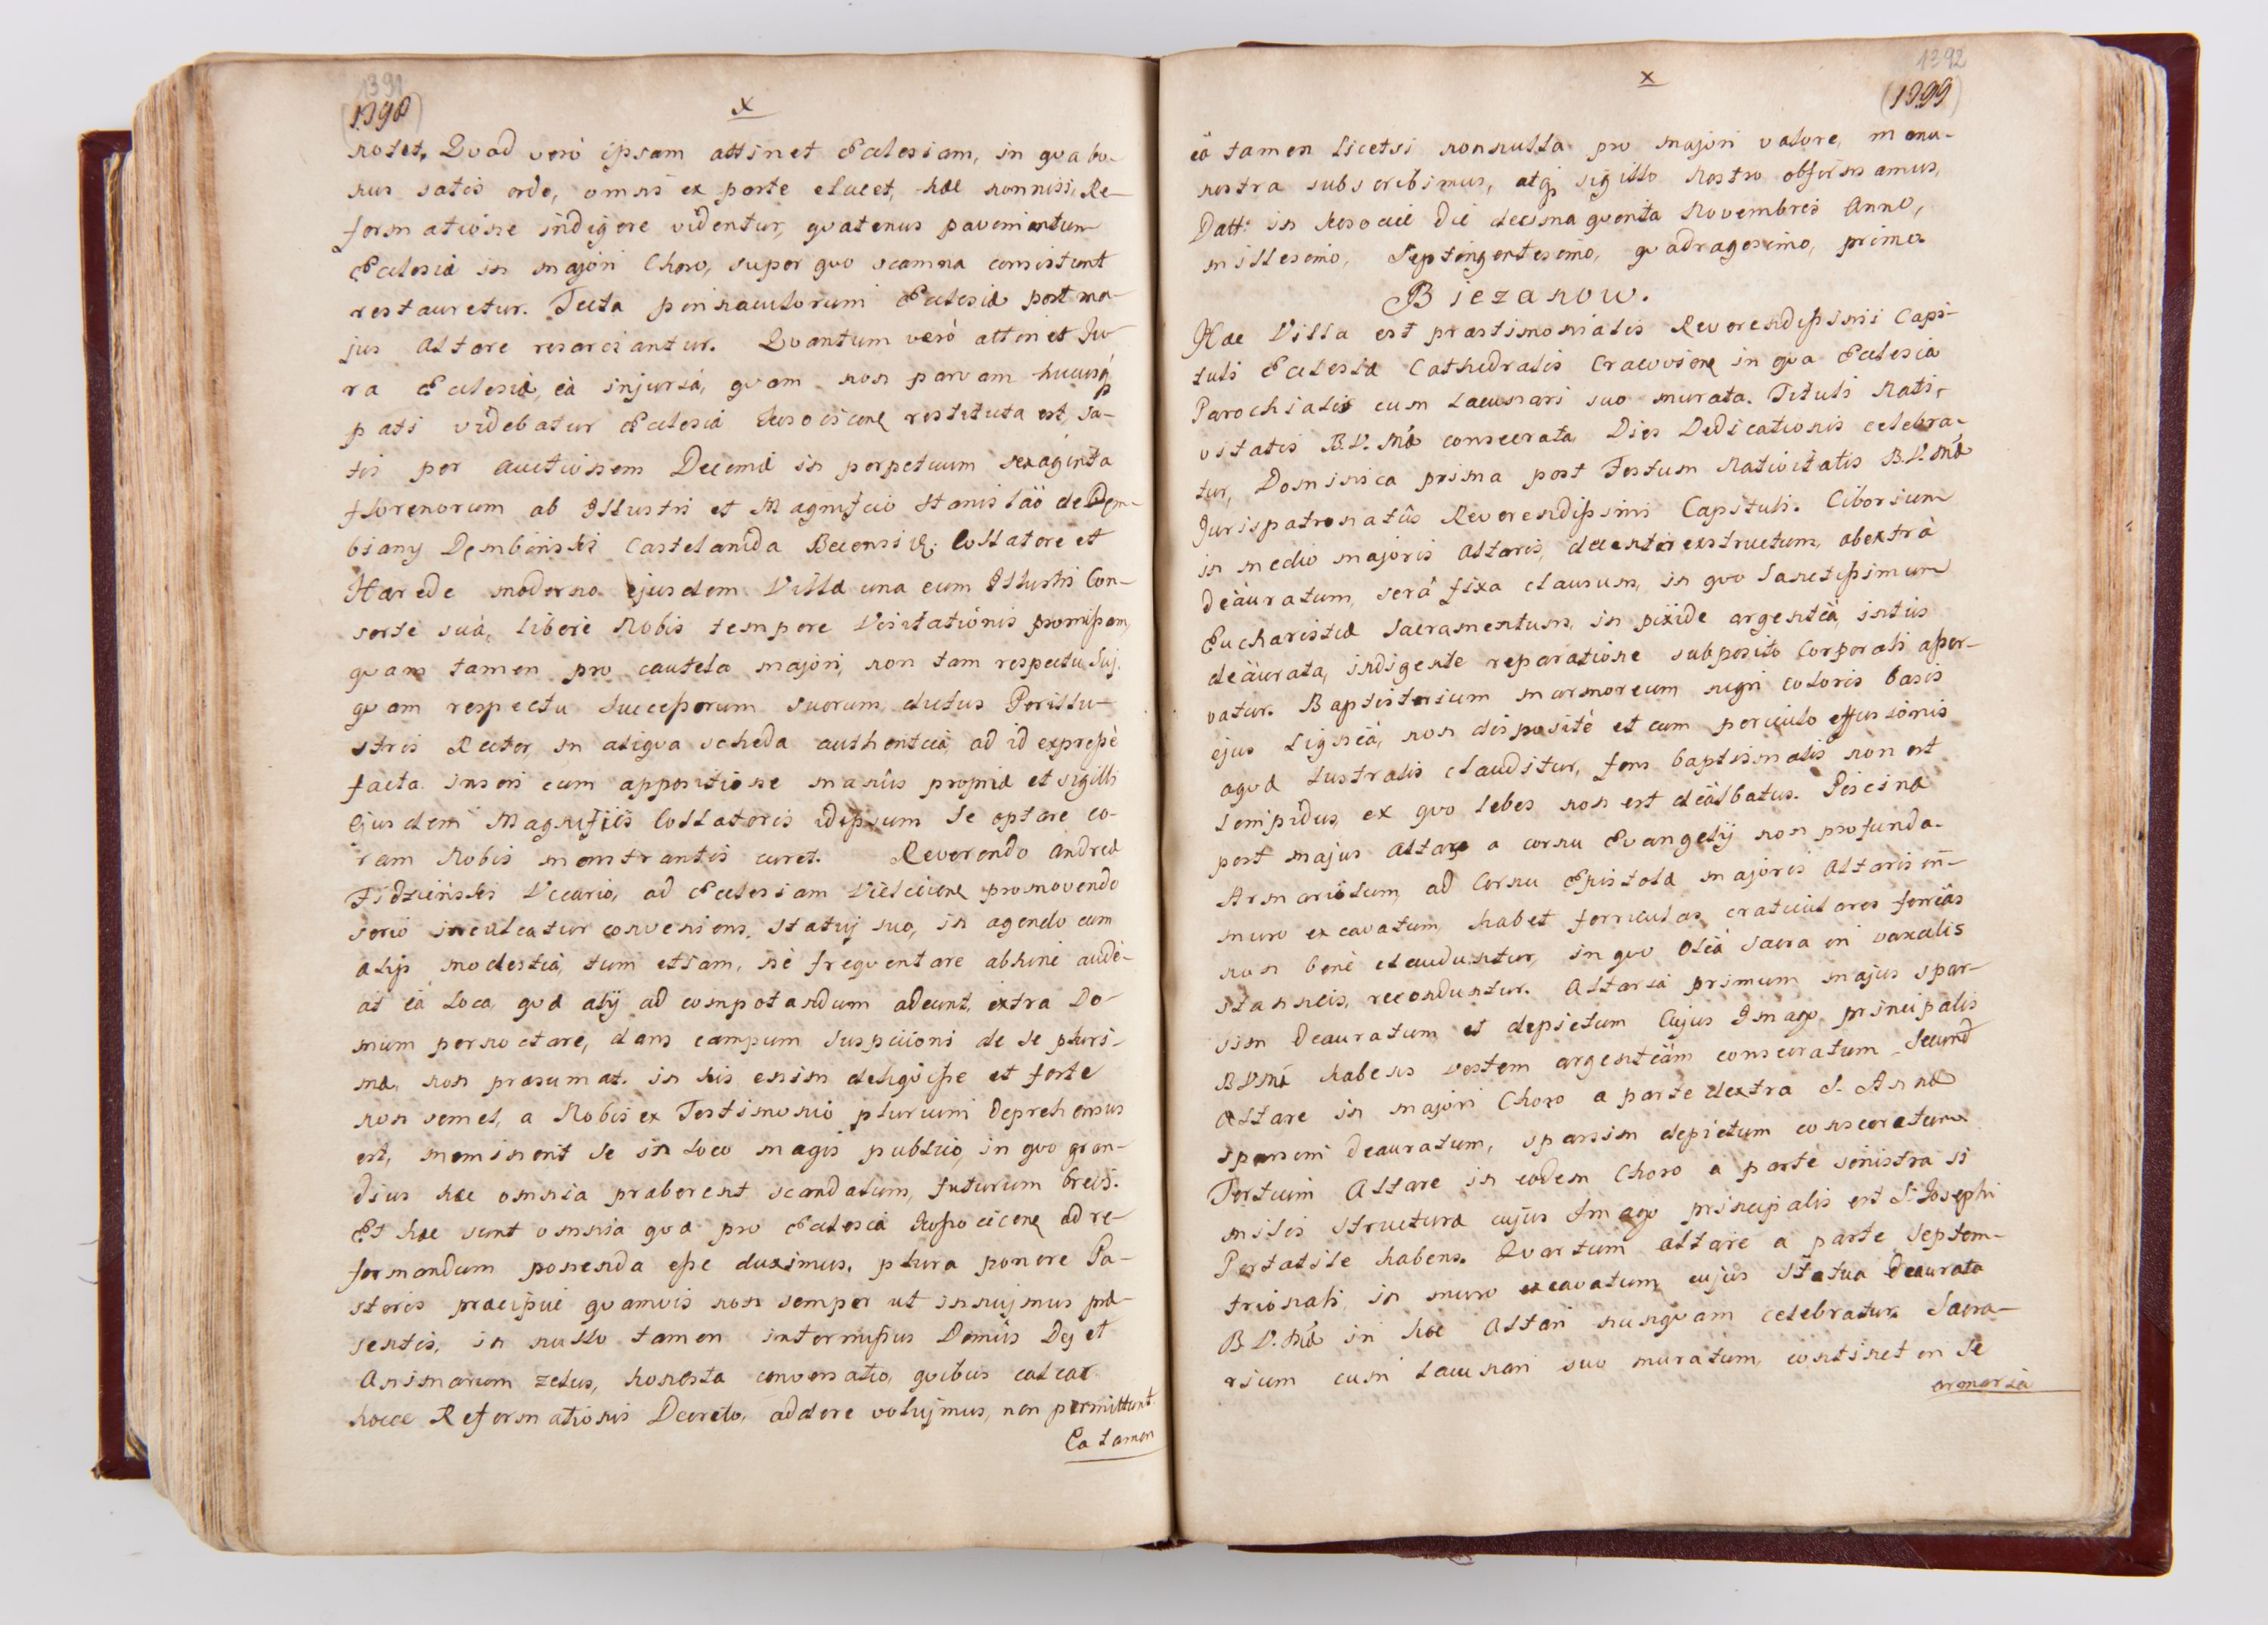 1391
(1398)
x
notet. Quod verò ipsam attinet Ecclesiam, in qua bo-
nus satis ordo, omni ex parte elucet, haec non nisi, Re-
formatione indigere videntur, quatenus pavimentum
Ecclesiæ in majori Choro, super quo scamna consistunt
restauretur. Tecta pinnaculorum Ecclesiæ post ma-
jus Altare resarciantur. Quantum verò attinet Ju-
ra Ecclesiæ, eà injuriá, quam non parvam hucusq
pati videbatur Ecclesia restituta est, sa-
tis per auctionem Decimæ in perpetuum sexaginta
florenorum ab Illustri et Magnifico Stanislaö de Dem-
biany Dembinski Castelanida Becensi Collatore et
Hærede moderno ejusdem Villæ una cum Illustri Con-
sorte suà, liberè Nobis tempore Visitationis promissam,
quam tamen pro cautela majori, non tam respectu Sui,
quam respectu Successorum suorum, dictus Perillu-
stris Rector, in aliqua scheda authentica, ad id expressè
facta inseri cum appositione manûs propriæ et sigilli
Ejusdem Magnifici Collatoris idipsum Se optare co-
ram Nobis monstrantis curet. Reverendo Andreæ
Vicario, ad Ecclesiam promovendo
seriò inculcatur conveniens, statuj suo, in agendo cum
alijs modestia, tum etiam, nè frequentare abhinc aude-
at eà loca, quæ alij ad compotandum adeunt, extra Do-
mum pernoctare, dans campum suspicioni de se pluri-
mæ, non præsumat. in his enim deliquisse et forte
non semel, a Nobis ex Testimonio plurium deprehensus
est, meminerit Se in loco magis publico, in quo gran-
dius hæc omnia præberent scandalum, futurum brevi.
Et hæc sunt omnia quæ pro Ecclesia ad re-
formandum ponenda esse duximus, plura ponere Pa-
storis præcipuè quamvis non semper ut innuimus præ-
sentis, in nullo tamen intermissus Domûs Dej et
Animarum zelus, honesta conversatio, quibus calcar
hocce Reformationis Decreto, addere volujmus, non permittunt.
Ea tamen
1392
(1399)
x
eà tamen licet si nonnulla pro majori valore, manu-
nostra subscribimus, atq sigillo Nostro obfirmamus,
Datt: in die decima quinta Novembris Anno,
millesimo, Septingentesimo, quadragesimo, primo.
Biezanow.
Hæc Villa est præstimonialis Reverendissimi Capi-
tuli Ecclesiæ Cathedralis Cracovien in qua Ecclesia
Parochialis cum lacunari suo murata. Tituli Nati-
vitatis B.V. Mæ consecrata, Dies Dedicationis celebra-
tur, Dominica prima post Festum Nativitatis B.V. Mæ
Jurispatronatûs Reverendissimi Capituli. Ciborium
in medio majoris Altaris, decenter exstructum, ab extrà
deàuratum, serâ fixa clausum, in quo Sanctissimum
Eucharistiæ Sacramentum, in pixide argenteà, intùs
deäurata, indigente reparatione subposito Corporali asser-
vatur. Baptisterium marmoreum nigri coloris basis
ejus ligneà, non dispositè et cum periculo effusionis
aquæ lustralis clauditur, fons baptismalis non est
limpidus, ex quo lebes non est deàlbatus. Piscina
post majus Altare a cornu Evangelij non profunda.
Armariolum, ad Cornu Epistolæ majoris Altaris in-
muro excavatum, habet forriculas craticulares ferreas
non benè clauduntur, in quo oleà sacra in vasculis
stanneis, reconduntur. Altaria primum majus spar-
sim deauratum et depictum Cujus Imago principalis
BVMæ habens vestem argenteàm consecratum. Secund
Altare in majori Choro a parte dextra S. Annæ
sparsim deauratum, sparsim depictum consecratum.
Tertium Altare in eodem Choro a parte sinistra si
milis structuræ cujus Imago principalis est S. Josephi
Portatile habens. Quartum altare a parte septem-
trionali, in muro excavatum, cujus Statua deaurata
B.V. Mæ in hoc Altari nunquam celebratur. Sacra-
rium cum lacunari suo muratum, continet in se
armaria